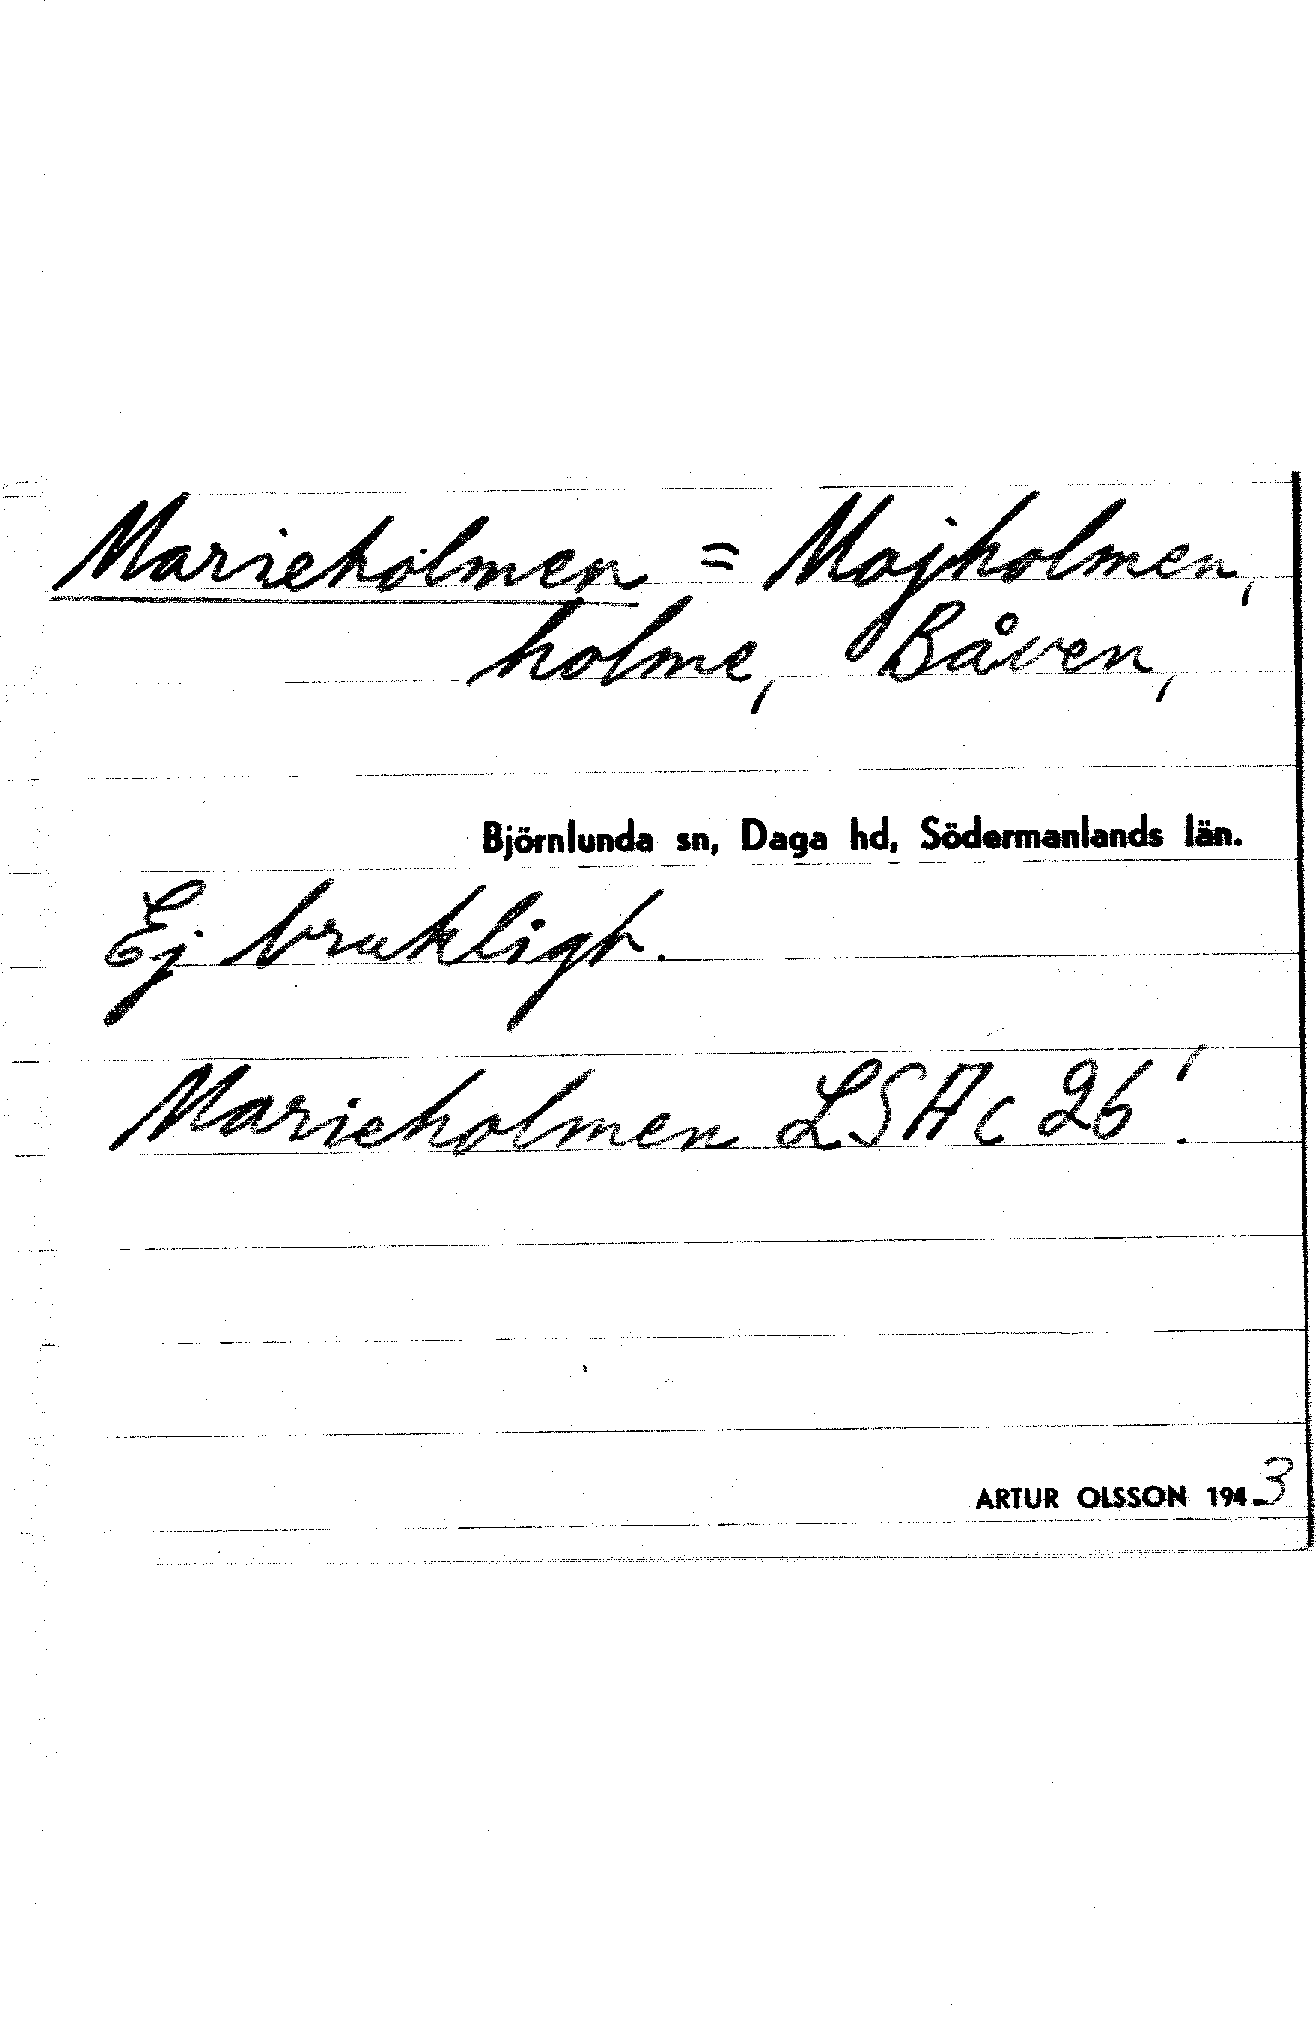 Marieholmen = Majholmen,
holme, Båven,
Björnlunda sn, Daga hd, Södermanlands län.
Ej brukligt.
Marieholmen LSA c 26!
ARTUR OLSSON 1943